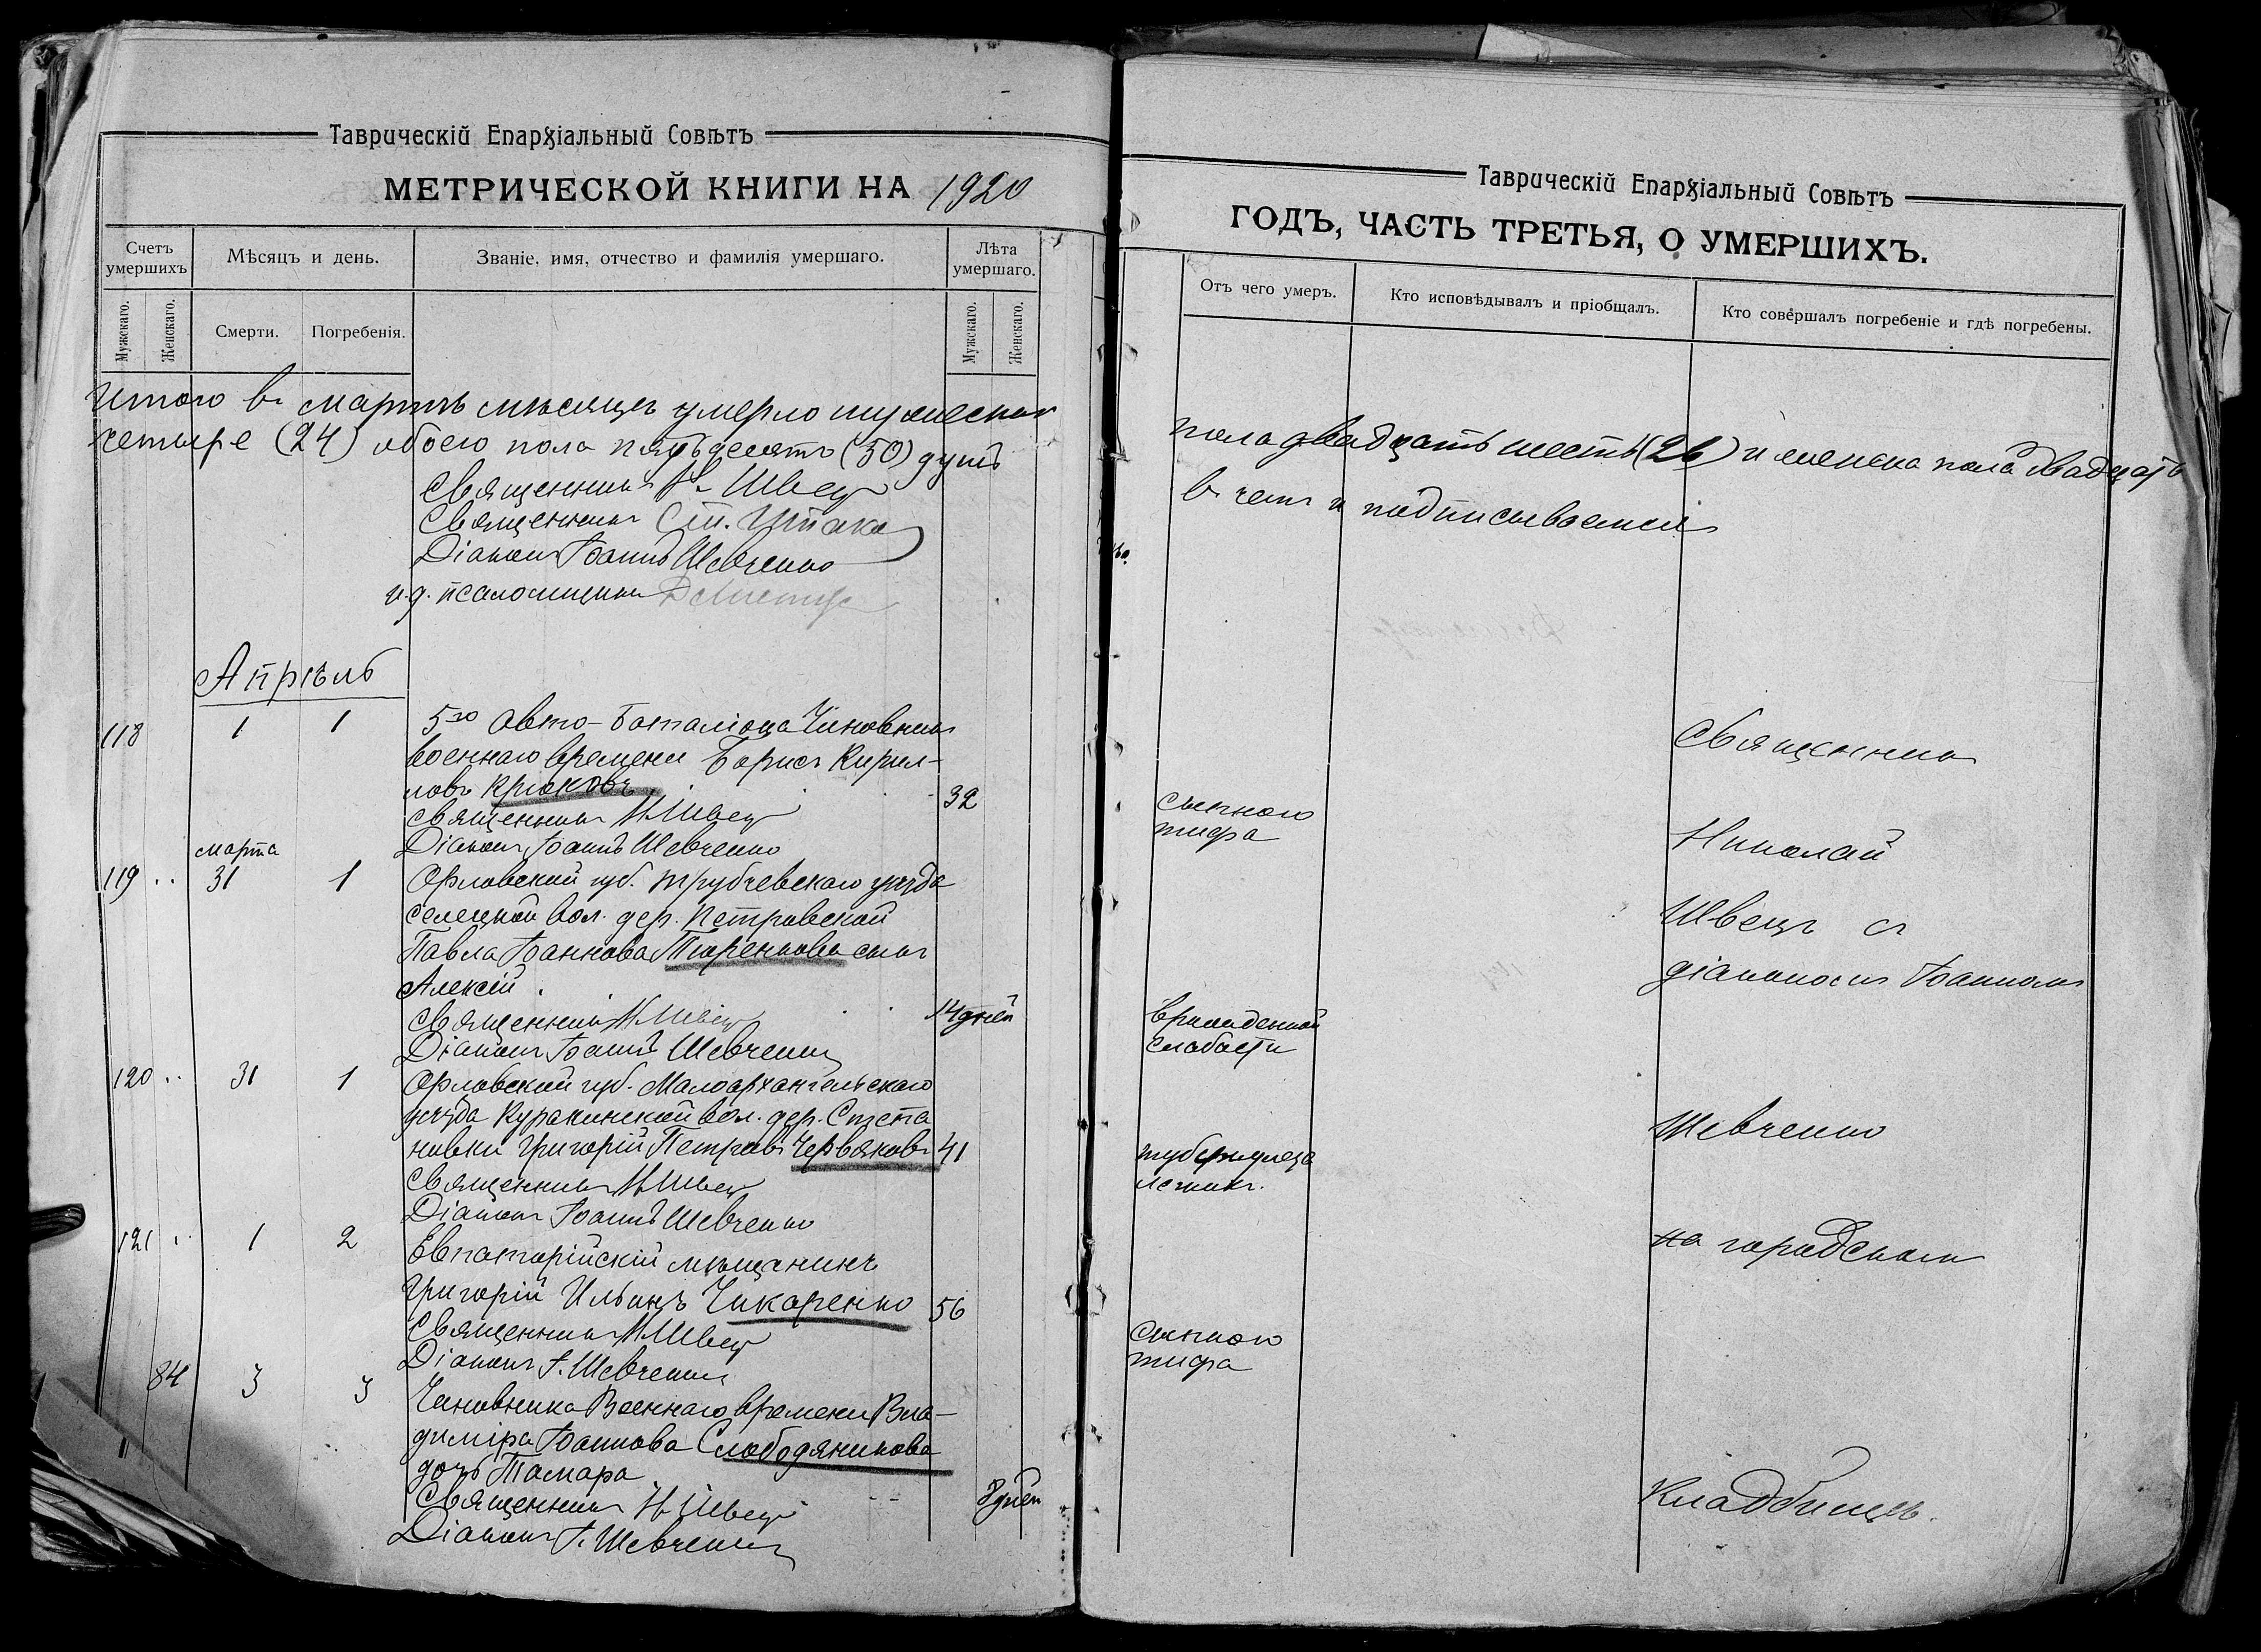 Таврическій Епархіальный Совѣтъ
МЕТРИЧЕСКОЙ КНИГИ НА 1920
Счетъ умершихъ
Мѣсяцъ и день.
Званіе, имя, отчество и фамилія умершаго.
Лѣта умершаго.
Мужскаго.
Женскаго.
Смерти.
Погребенія.
Мужскаго.
Женскаго.
Итого въ мартѣ мѣсяцѣ умерло мужеска
четыре (24) обоего пола пятьдесятъ (50) душъ
Священникъ Н. Швец
Священникъ Ст.
Діаконъ Іоаннъ Шевченко
и.д. псаломщика
Апрѣль
118 1 1 5го Авто-Баталіона Чиновникъ
военнаго времени Борисъ Кирил-
ловъ Крюковъ 32
Священникъ Н Швец
Діаконъ Іоаннъ Шевченко
марта
119 31 1 Орловской губ. Трубчевскаго уѣзда
Селецкой вол. дер. Петровской
Павла Іоаннова Тюренкова сынъ
Алексій
Священникъ Н Швец 14 дней
Діаконъ Іоаннъ Шевченко
120 31 1 Орловской губ. Малоархангельскаго
уѣзда Куракинской вол. дер. Степа
новки Григорій Петровъ Червяковъ 41
Священникъ Н Швец
Діаконъ Іоаннъ Шевченко
121 1 2 Евпаторійскій мѣщанинъ
Григорій Ильинъ Чикаренко 56
Священникъ Н Швец
Діаконъ І. Шевченко
84 3 3 Чиновника Военнаго времени Вла-
диміра Іоаннова Слободяникова
дочь Тамара
Священникъ Н Швец 8 дней
Діаконъ І. Шевченко
Таврическій Епархіальный Совѣтъ
ГОДЪ, ЧАСТЬ ТРЕТЬЯ, О УМЕРШИХЪ.
Отъ чего умеръ.
Кто исповѣдывалъ и пріобщалъ.
Кто совершалъ погребеніе и гдѣ погребены.
пола двадцать шесть (26) и женска пола двадцать
в чемъ и подписываемся
Священникъ
сыпного
тифа
Николай
Швецъ съ
діакономъ Іоанномъ
врожденной
слабости
Шевченко
туберкулеза
легкихъ.
на городскомъ
сыпного
тифа
Кладбищѣ.